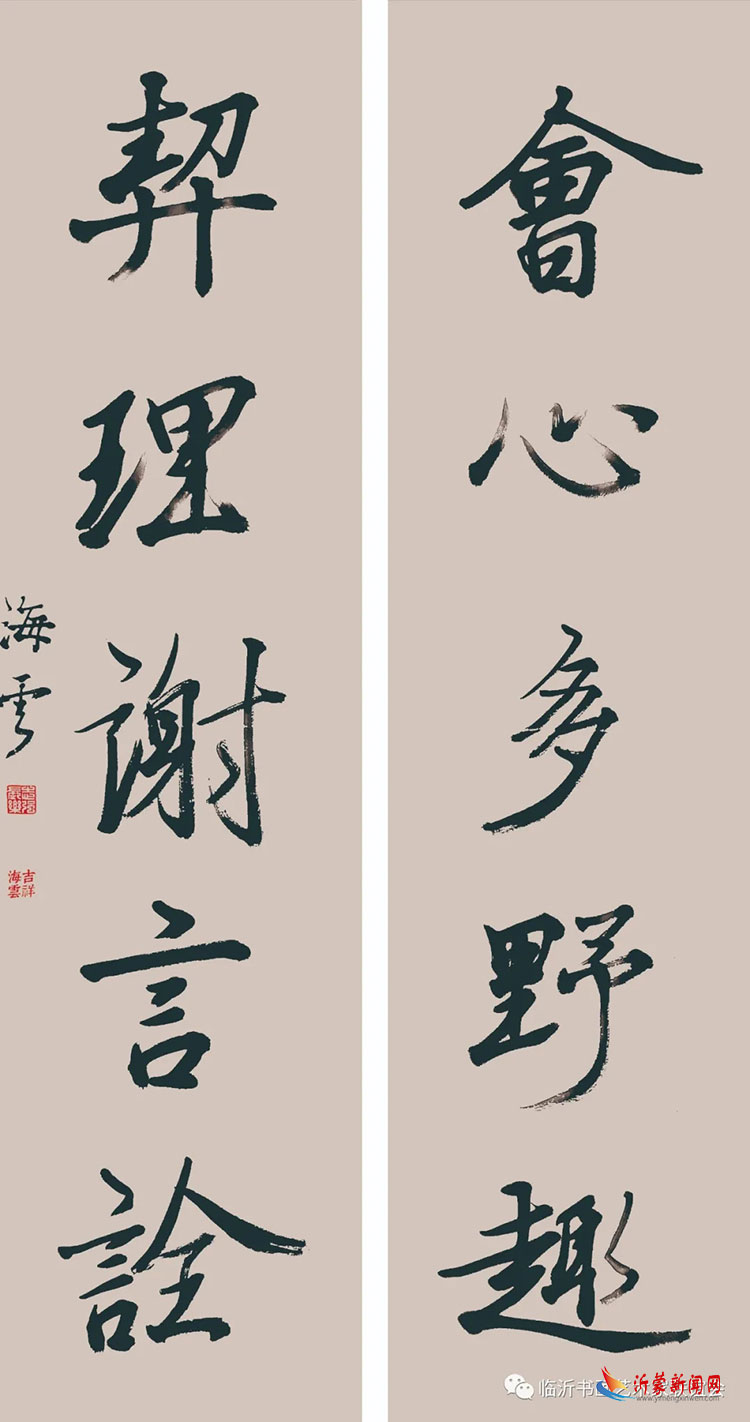 會心多野趣
契理謝言詮
海雲
吉祥
海雲
临沂书画艺术
沂蒙新闻网
www.yimengxinwen.com